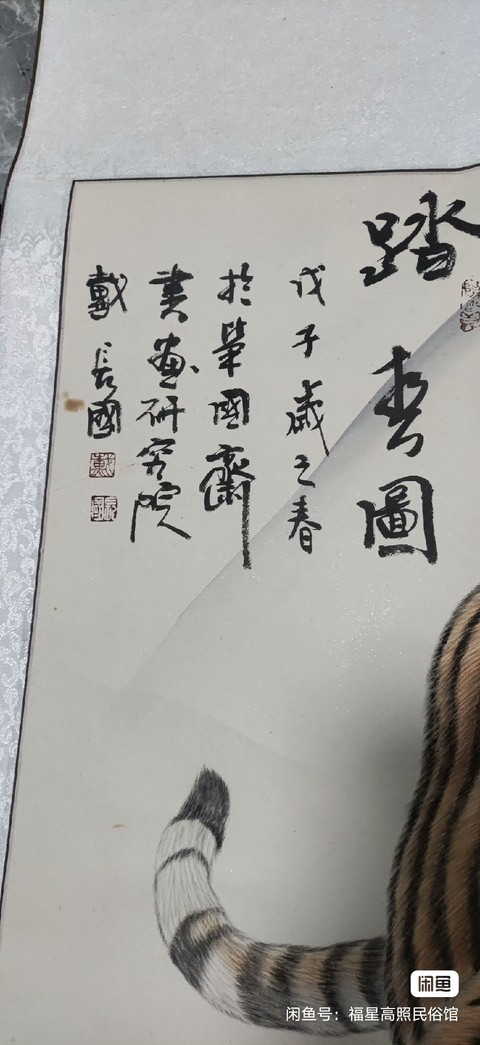 踏春圖
戊子歲之春
於筆國齋
書畫研究院
戴長國
闲鱼
闲鱼号：福星高照民俗馆